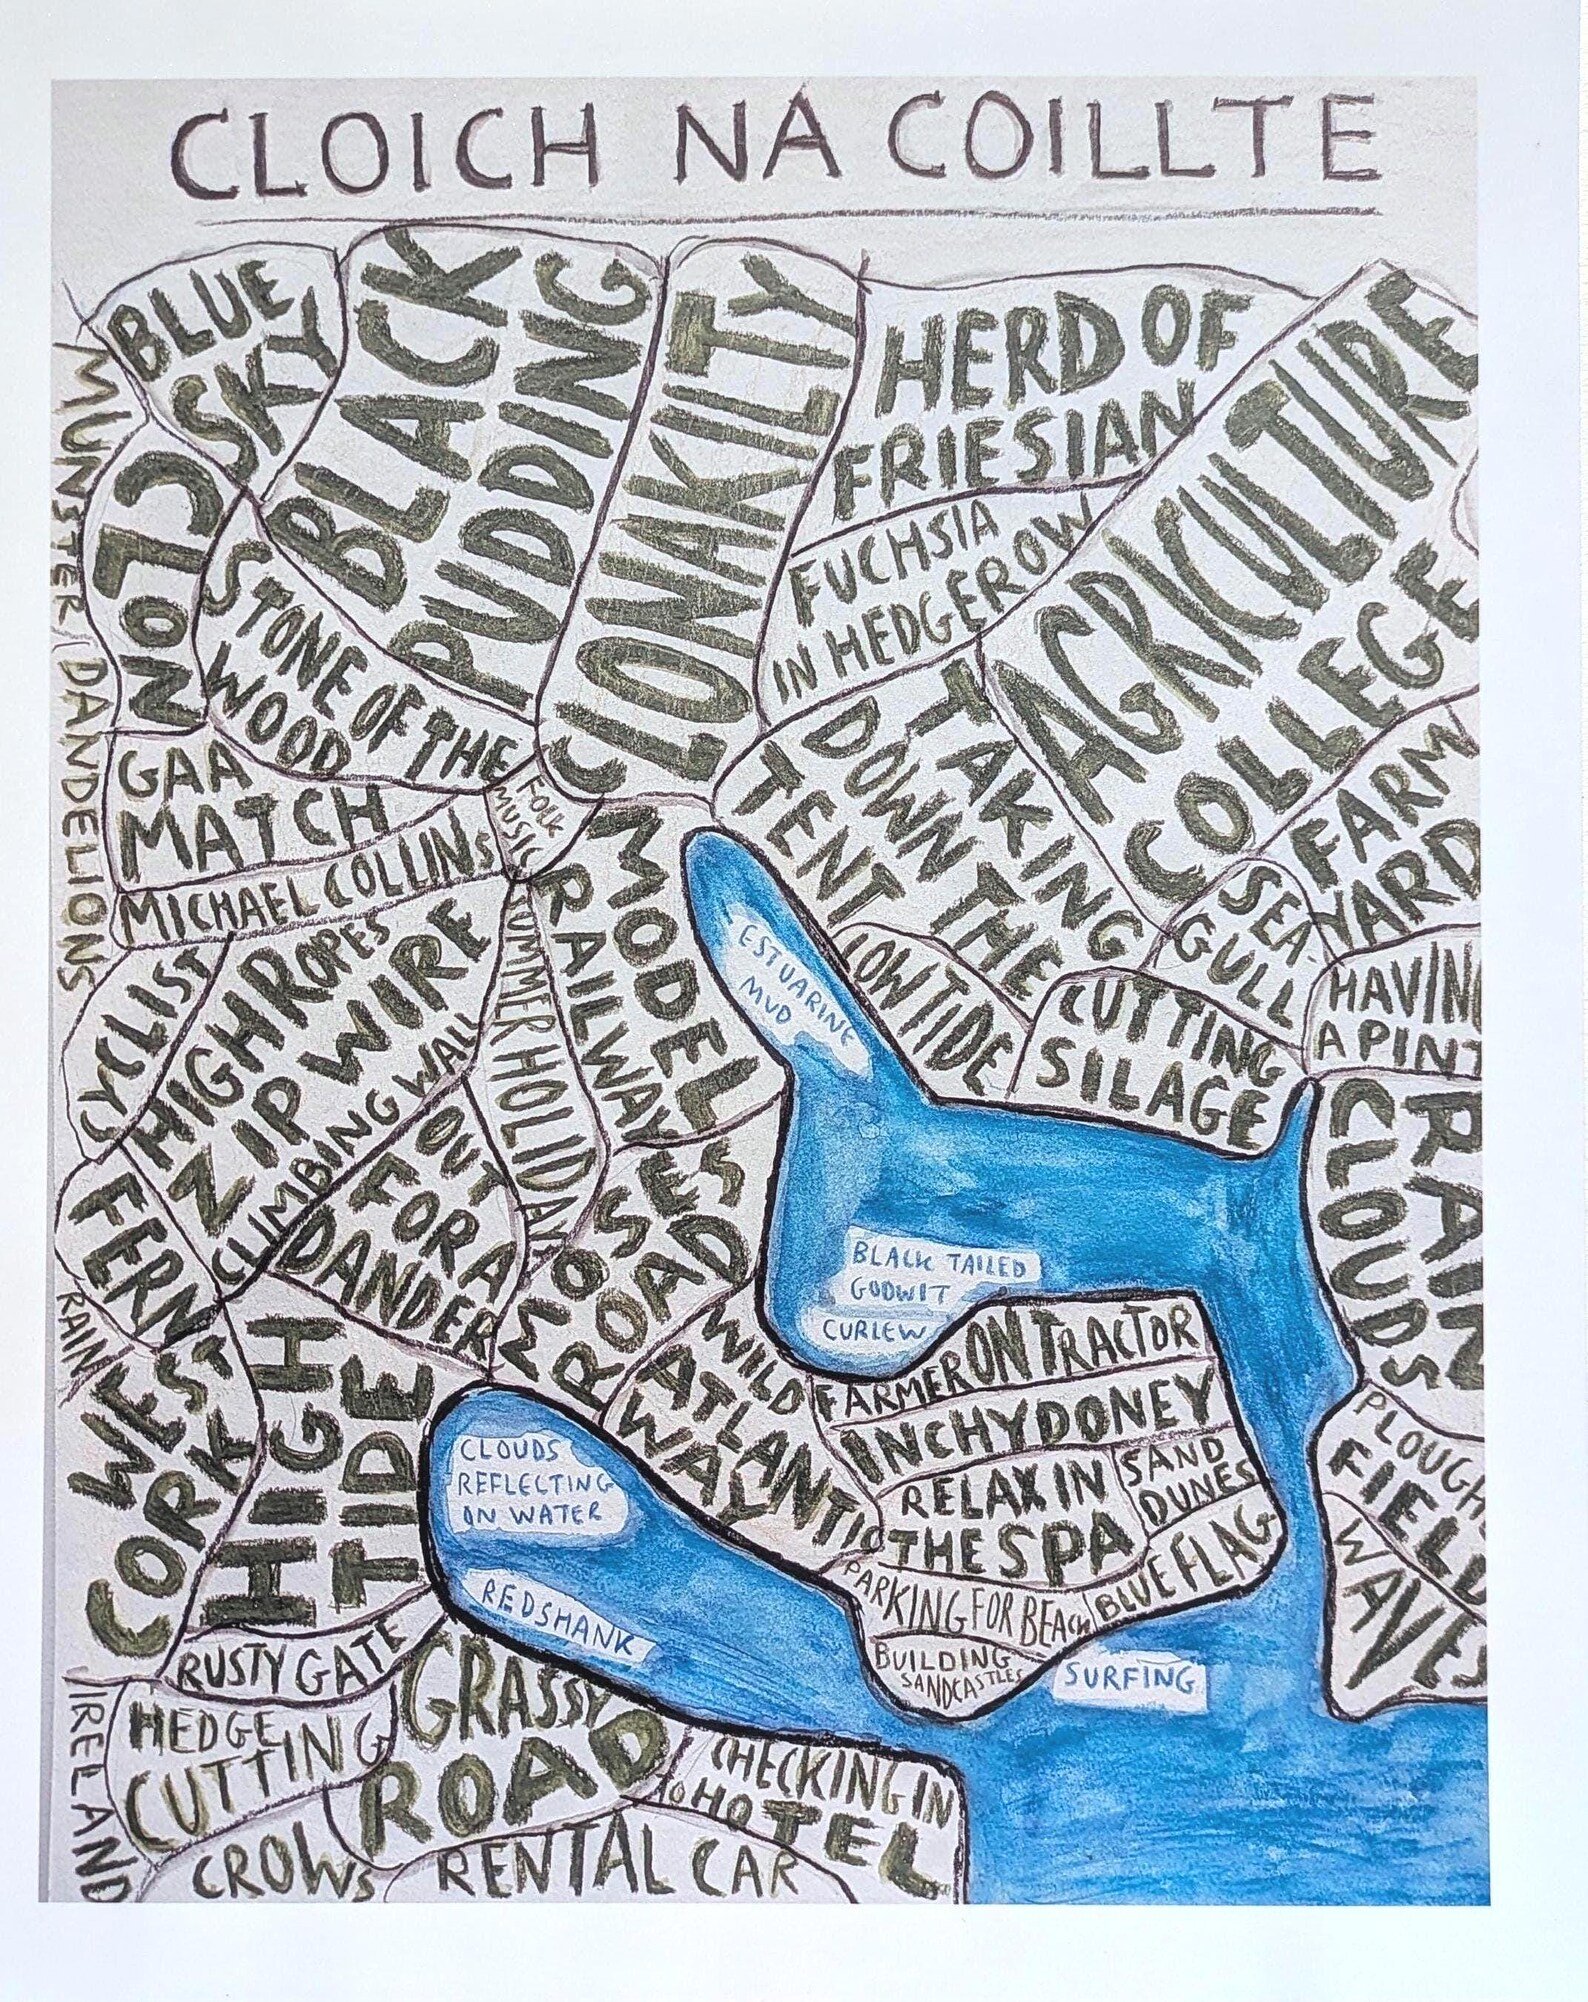 CLOICH NA COILLTE
BLUE
SKY
BLACK
PUDDING
CLONAKILTY
HERD OF
FRIESIAN
AGRICULTURE
COLLEGE
MUNSTER
DANDELIONS
STONE OF THE
WOOD
FUCHSIA
IN HEDGEROW
GAA
MATCH
FOLK
MUSIC
TAKING
DOWN THE
TENT
FARM
YARD
MICHAEL COLLINS
MODEL
RAILWAY
SEA-
GULL
ESTUARINE
MUD
LOW TIDE
CUTTING
SILAGE
HAVING
A PINT
CYCLIST
HIGH ROPES
ZIP WIRE
CLIMBING WALL
SUMMER HOLIDAY
RAIN
CLOUDS
FERN
OUT
FOR A
DANDER
MOSSED
ROAD
BLACK TAILED
GODWIT
CURLEW
RAIN
WEST
CORK
HIGH
TIDE
WILD
ATLANTIC
WAY
FARMER ON TRACTOR
INCHYDONEY
RELAX IN
THE SPA
SAND
DUNES
BLUE FLAG
PLOUGH
FIELD
WAVES
CLOUDS
REFLECTING
ON WATER
REDSHANK
PARKING FOR BEACH
BUILDING
SANDCASTLES
SURFING
RUSTY GATE
IRELAND
HEDGE
CUTTING
GRASSY
ROAD
CHECKING IN
HOTEL
CROWS
RENTAL CAR